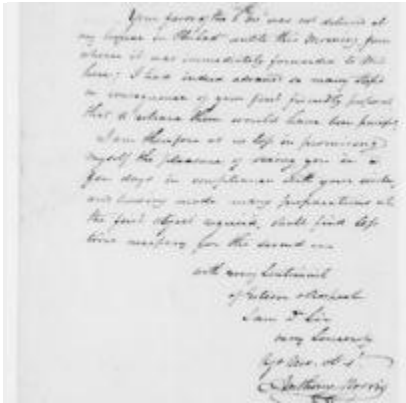 Your favor of the 8th ins' was not deliver'd at
my house in Philad. untill this Morning, from
where it was immediately forwarded to me
here; I had indeed advanced so many steps
in consequence of your first friendly proposal
that to retrace them would have been
I am therefore at no loss in promising
myself the pleasure of seeing you in a
few days in compliance with your
and having made many preparations
the first object required, shall find less
time necessary for the second
with every Sentiment
of Esteem & Respect
I am Dr Sir
very Sincerely
Anthony Morris